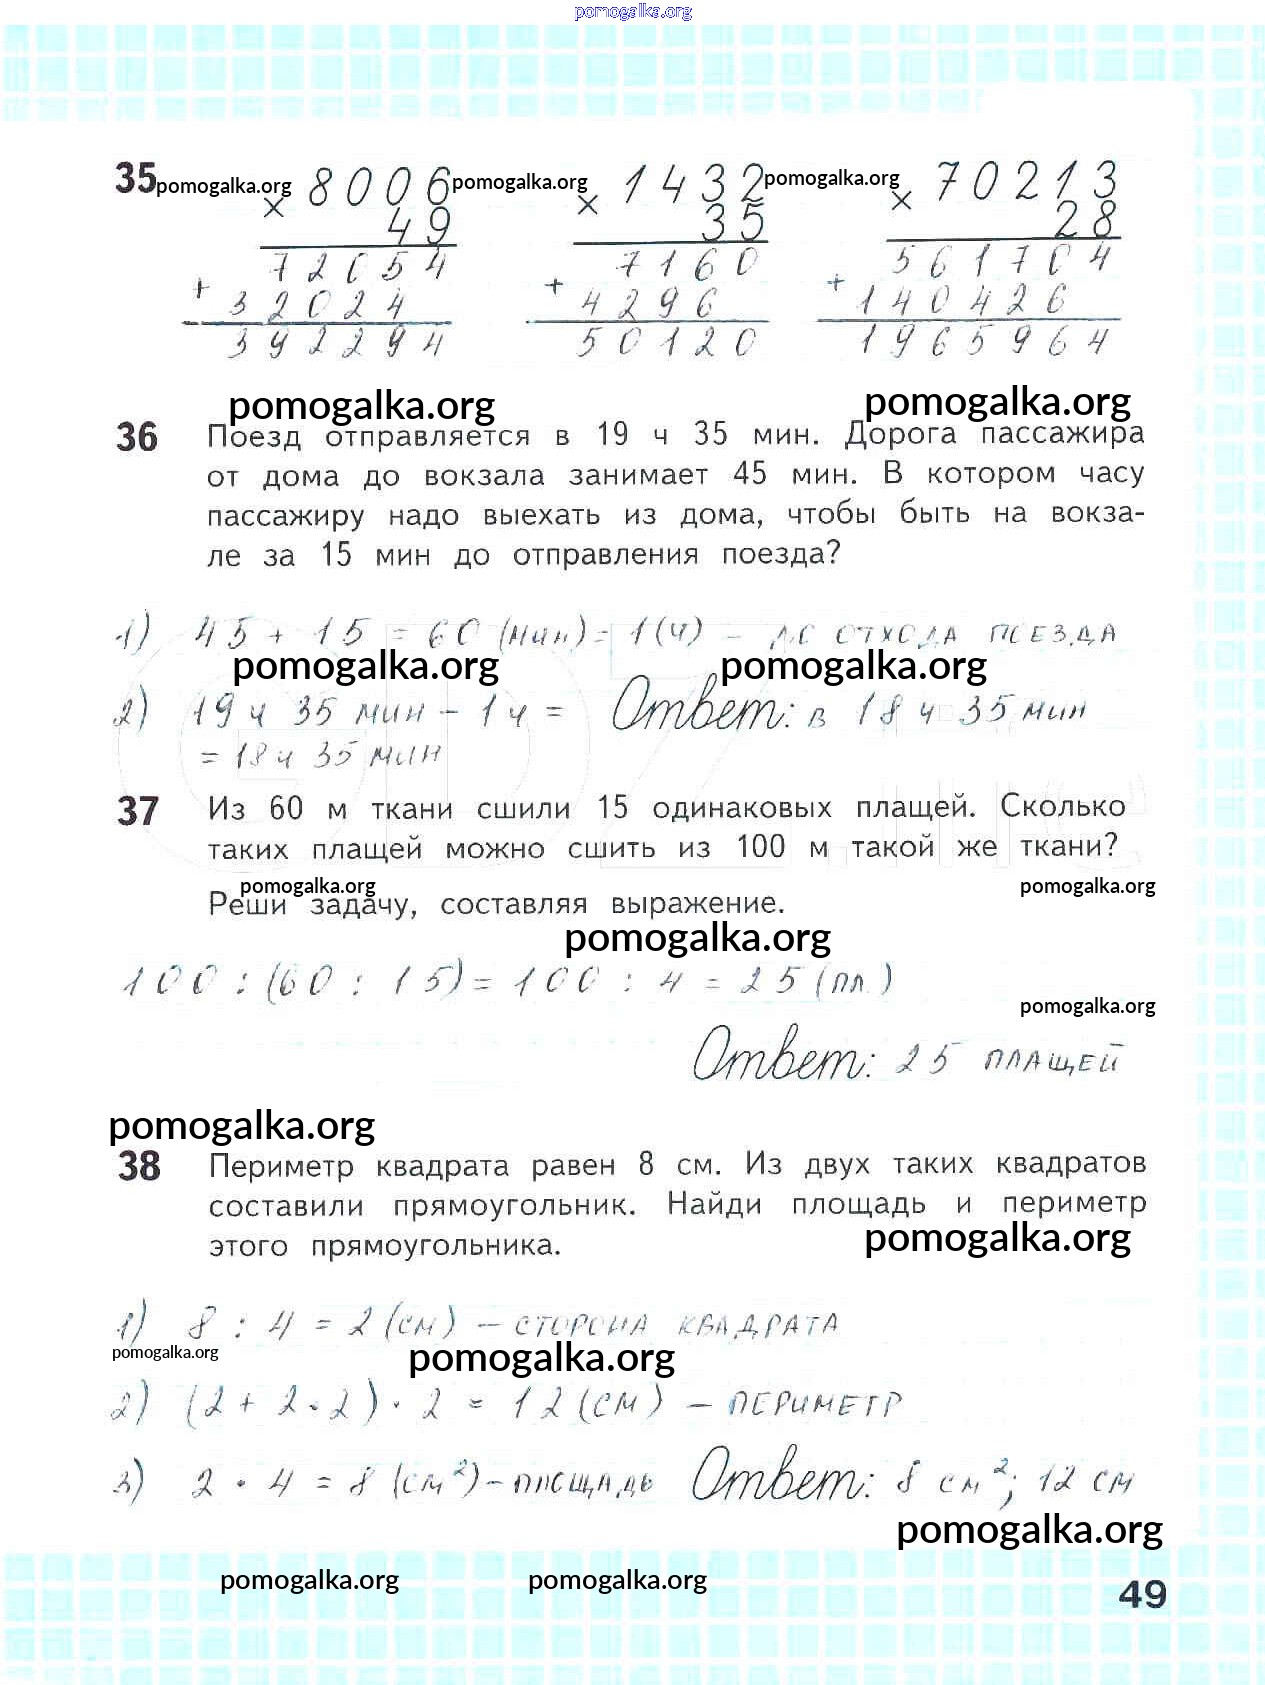 pomogalka.org
35 pomogalka.org × 8006 pomogalka.org × 1432 pomogalka.org × 70213
49 35 28
72054 7160 561704
+ 32024 + 4296 + 140426
392294 50120 1965964
pomogalka.org pomogalka.org
36 Поезд отправляется в 19 ч 35 мин. Дорога пассажира
от дома до вокзала занимает 45 мин. В котором часу
пассажиру надо выехать из дома, чтобы быть на вокза-
ле за 15 мин до отправления поезда?
1) 45 + 15 = 60 (мин) = 1 (ч) – до отхода поезда
pomogalka.org pomogalka.org
2) 19 ч 35 мин – 1 ч = Ответ: в 18 ч 35 мин
= 18 ч 35 мин
37 Из 60 м ткани сшили 15 одинаковых плащей. Сколько
таких плащей можно сшить из 100 м такой же ткани?
pomogalka.org pomogalka.org
Реши задачу, составляя выражение.
pomogalka.org
100 : (60 : 15) = 100 : 4 = 25 (пл.)
pomogalka.org
Ответ: 25 плащей
pomogalka.org
38 Периметр квадрата равен 8 см. Из двух таких квадратов
составили прямоугольник. Найди площадь и периметр
этого прямоугольника.
pomogalka.org
1) 8 : 4 = 2 (см) – сторона квадрата
pomogalka.org pomogalka.org
2) (2 + 2 · 2) · 2 = 12 (см) – периметр
3) 2 · 4 = 8 (см²) – площадь Ответ: 8 см²; 12 см
pomogalka.org
pomogalka.org pomogalka.org
49